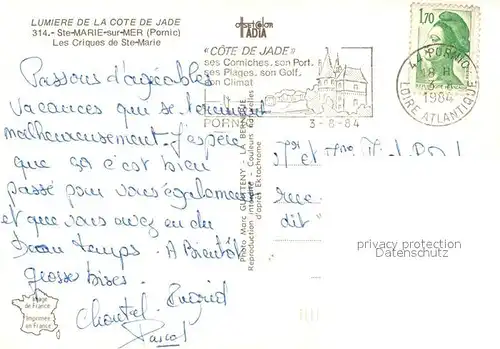 LUMIERE DE LA COTE DE JADE
314.- Ste-MARIE-sur-MER (Pornic)
Les Criques de Ste-Marie
Passons d'agréables
vacances qui se terminent
malheureusement. J'espère
que ça c'est bien
passé pour vous également
et que vous avez eu du
beau temps. A Bientôt
grosse bises.
Chantal
Pascal
Image
de France
Imprimée
en France
TADIA
Photo Marc
Reproduction interdite - Couleurs naturelles
d'après Ektachrome
«CÔTE DE JADE»
ses Corniches. son Port.
ses Plages. son Golf.
son Climat
PORNIC
3-8-84
1,70
44 PORNIC
18 H
3-8
1984
LOIRE ATLANTIQUE
et
rue
dit
privacy protection
Datenschutz